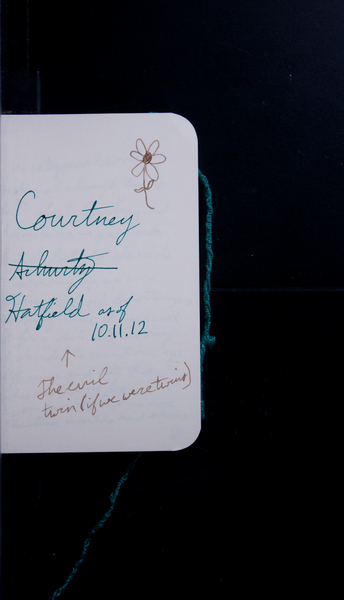 Courtney
Ashurtz
Hatfield as of
10.11.12
The evil
twin (if we were twins)